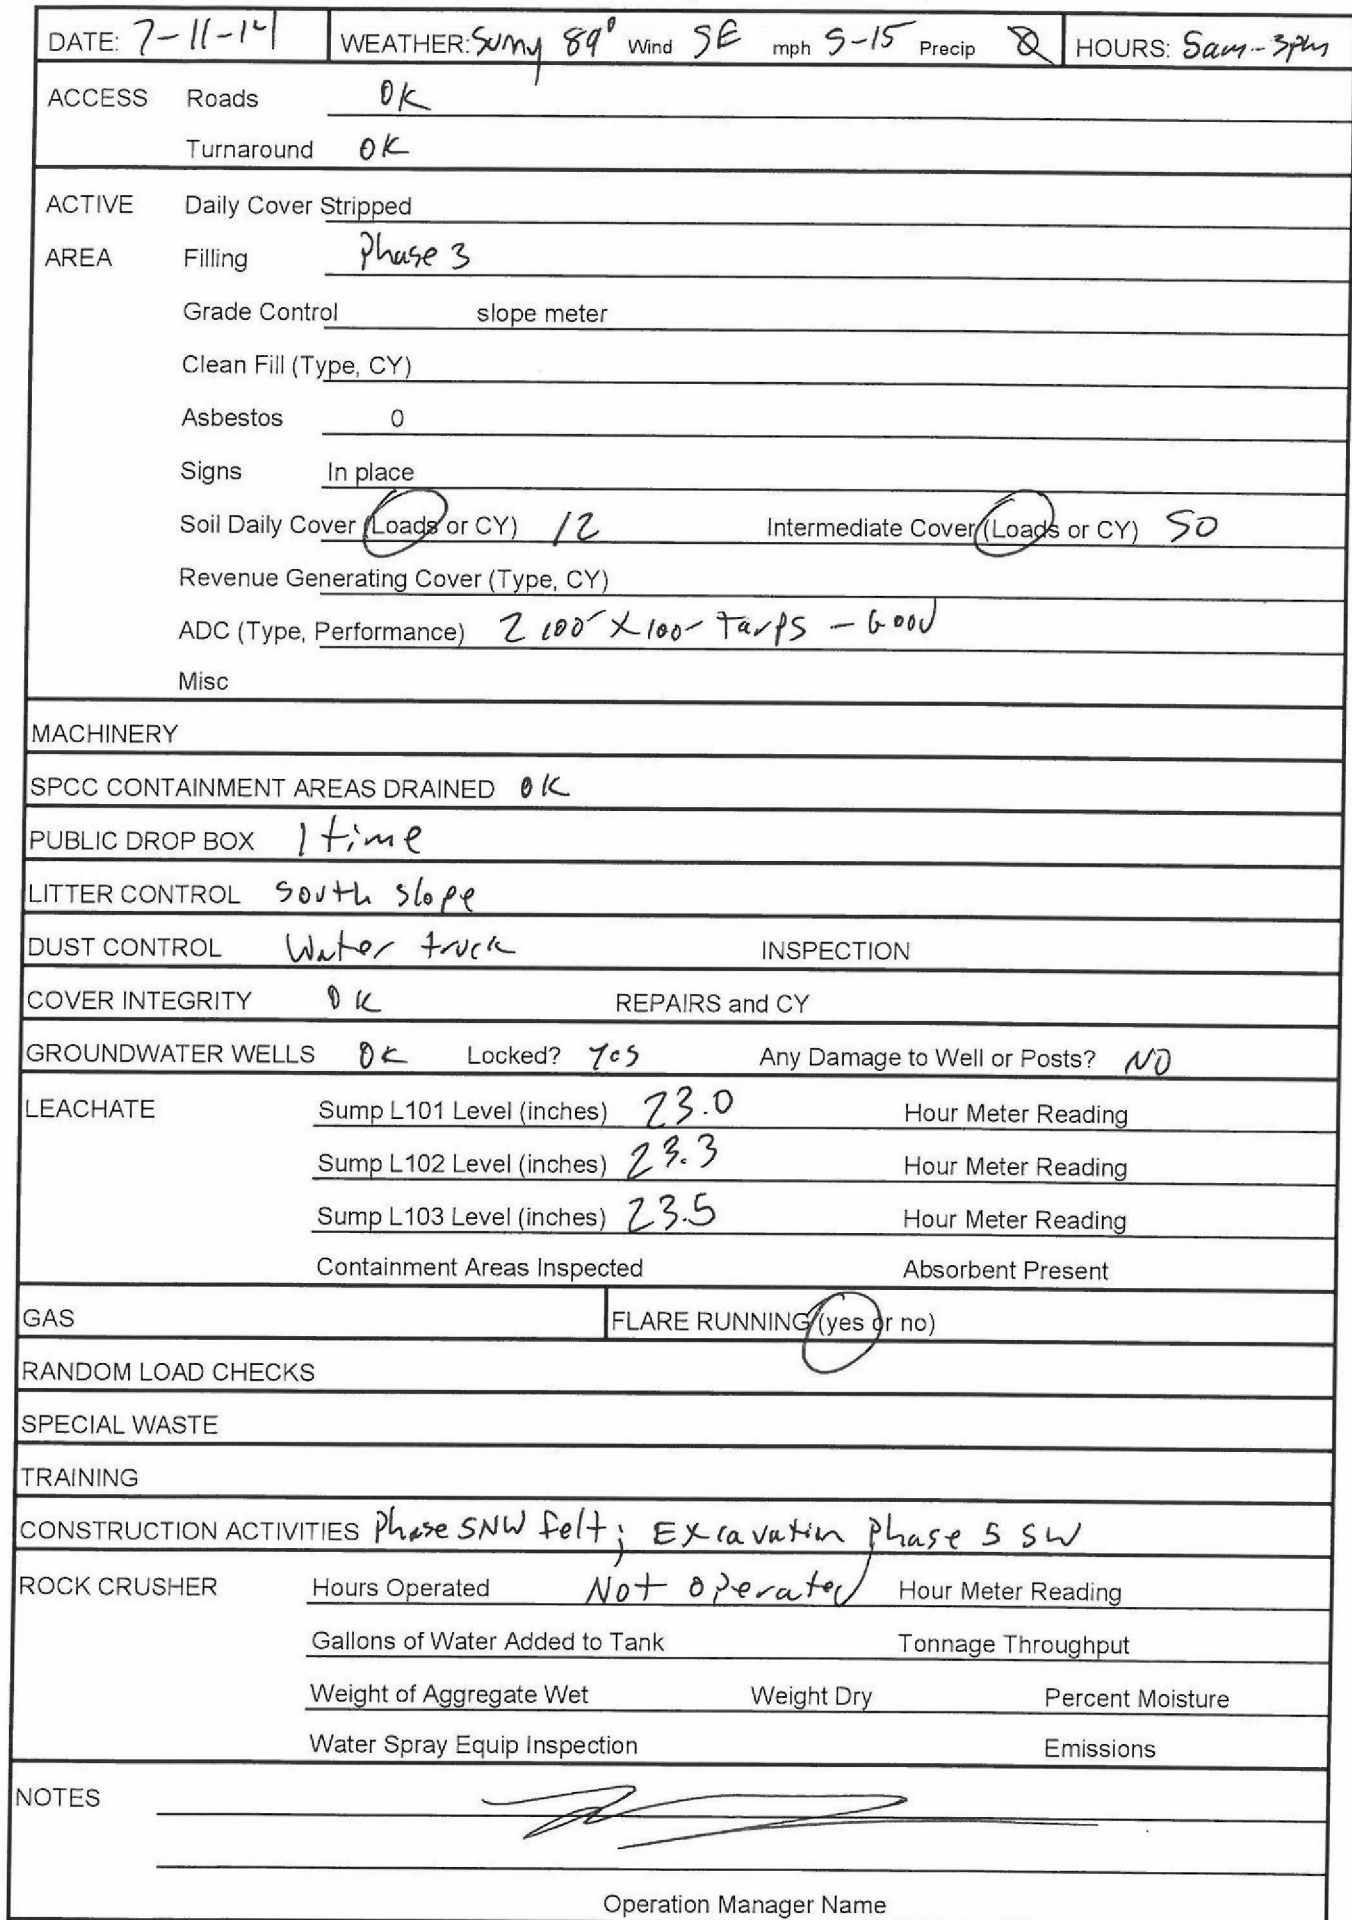 DATE: 7-11-14 WEATHER: Sunny 89° Wind SE mph 5-15 Precip 0 HOURS: 5am-3pm
ACCESS Roads OK
Turnaround OK
ACTIVE Daily Cover Stripped
AREA Filling Phase 3
Grade Control slope meter
Clean Fill (Type, CY)
Asbestos 0
Signs In place
Soil Daily Cover (Loads or CY) 12 Intermediate Cover (Loads or CY) 50
Revenue Generating Cover (Type, CY)
ADC (Type, Performance) 2 100' X 100' Tarps - Good
Misc
MACHINERY
SPCC CONTAINMENT AREAS DRAINED OK
PUBLIC DROP BOX 1 time
LITTER CONTROL South slope
DUST CONTROL Water truck INSPECTION
COVER INTEGRITY OK REPAIRS and CY
GROUNDWATER WELLS OK Locked? Yes Any Damage to Well or Posts? NO
LEACHATE Sump L101 Level (inches) 23.0 Hour Meter Reading
Sump L102 Level (inches) 23.3 Hour Meter Reading
Sump L103 Level (inches) 23.5 Hour Meter Reading
Containment Areas Inspected Absorbent Present
GAS FLARE RUNNING (yes or no)
RANDOM LOAD CHECKS
SPECIAL WASTE
TRAINING
CONSTRUCTION ACTIVITIES Phase 5NW felt; Excavation Phase 5 SW
ROCK CRUSHER Hours Operated Not operated Hour Meter Reading
Gallons of Water Added to Tank Tonnage Throughput
Weight of Aggregate Wet Weight Dry Percent Moisture
Water Spray Equip Inspection Emissions
NOTES
Operation Manager Name